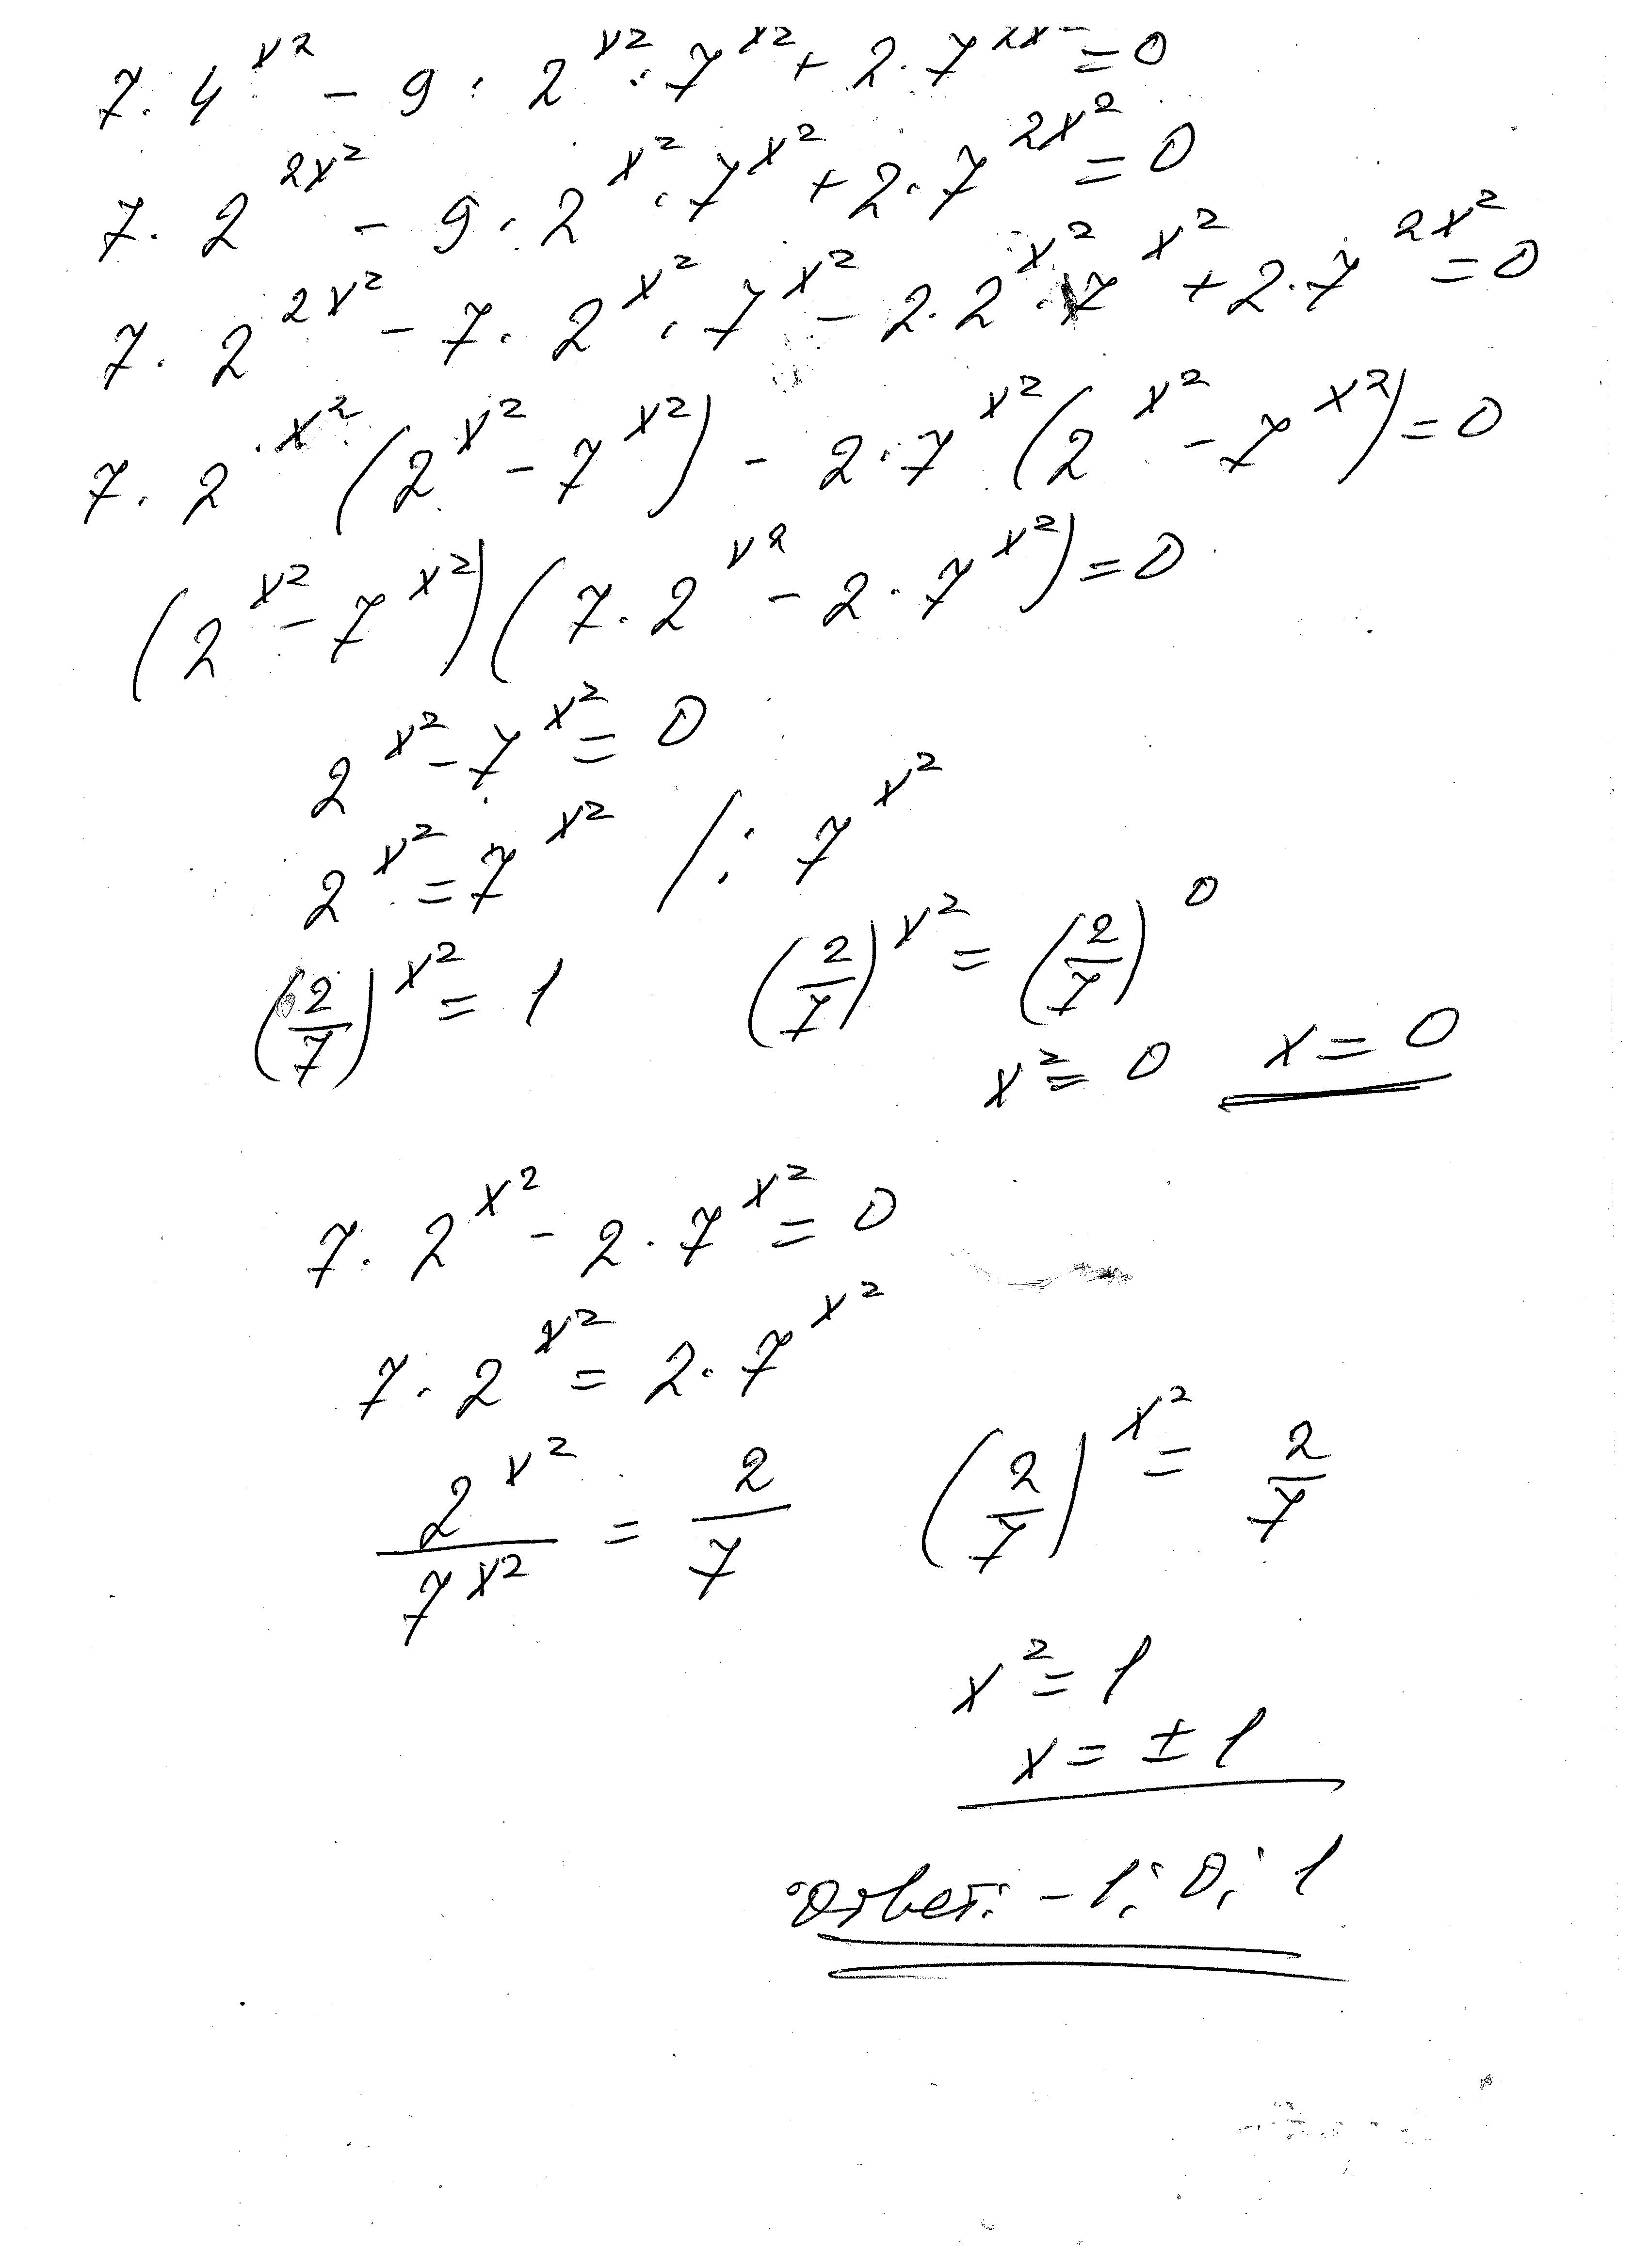 7 · 4^{x^2} - 9 · 2^{x^2} · 7^{x^2} + 2 · 7^{2x^2} = 0
7 · 2^{2x^2} - 9 · 2^{x^2} · 7^{x^2} + 2 · 7^{2x^2} = 0
7 · 2^{2x^2} - 7 · 2^{x^2} · 7^{x^2} - 2 · 2^{x^2} · 7^{x^2} + 2 · 7^{2x^2} = 0
7 · 2^{x^2} (2^{x^2} - 7^{x^2}) - 2 · 7^{x^2} (2^{x^2} - 7^{x^2}) = 0
(2^{x^2} - 7^{x^2}) (7 · 2^{x^2} - 2 · 7^{x^2}) = 0
2^{x^2} - 7^{x^2} = 0
2^{x^2} = 7^{x^2} / : 7^{x^2}
(2/7)^{x^2} = 1 (2/7)^{x^2} = (2/7)^0
x^2 = 0 x = 0
7 · 2^{x^2} - 2 · 7^{x^2} = 0
7 · 2^{x^2} = 2 · 7^{x^2}
2^{x^2}/7^{x^2} = 2/7 (2/7)^{x^2} = 2/7
x^2 = 1
x = ± 1
Ответ: -1; 0; 1